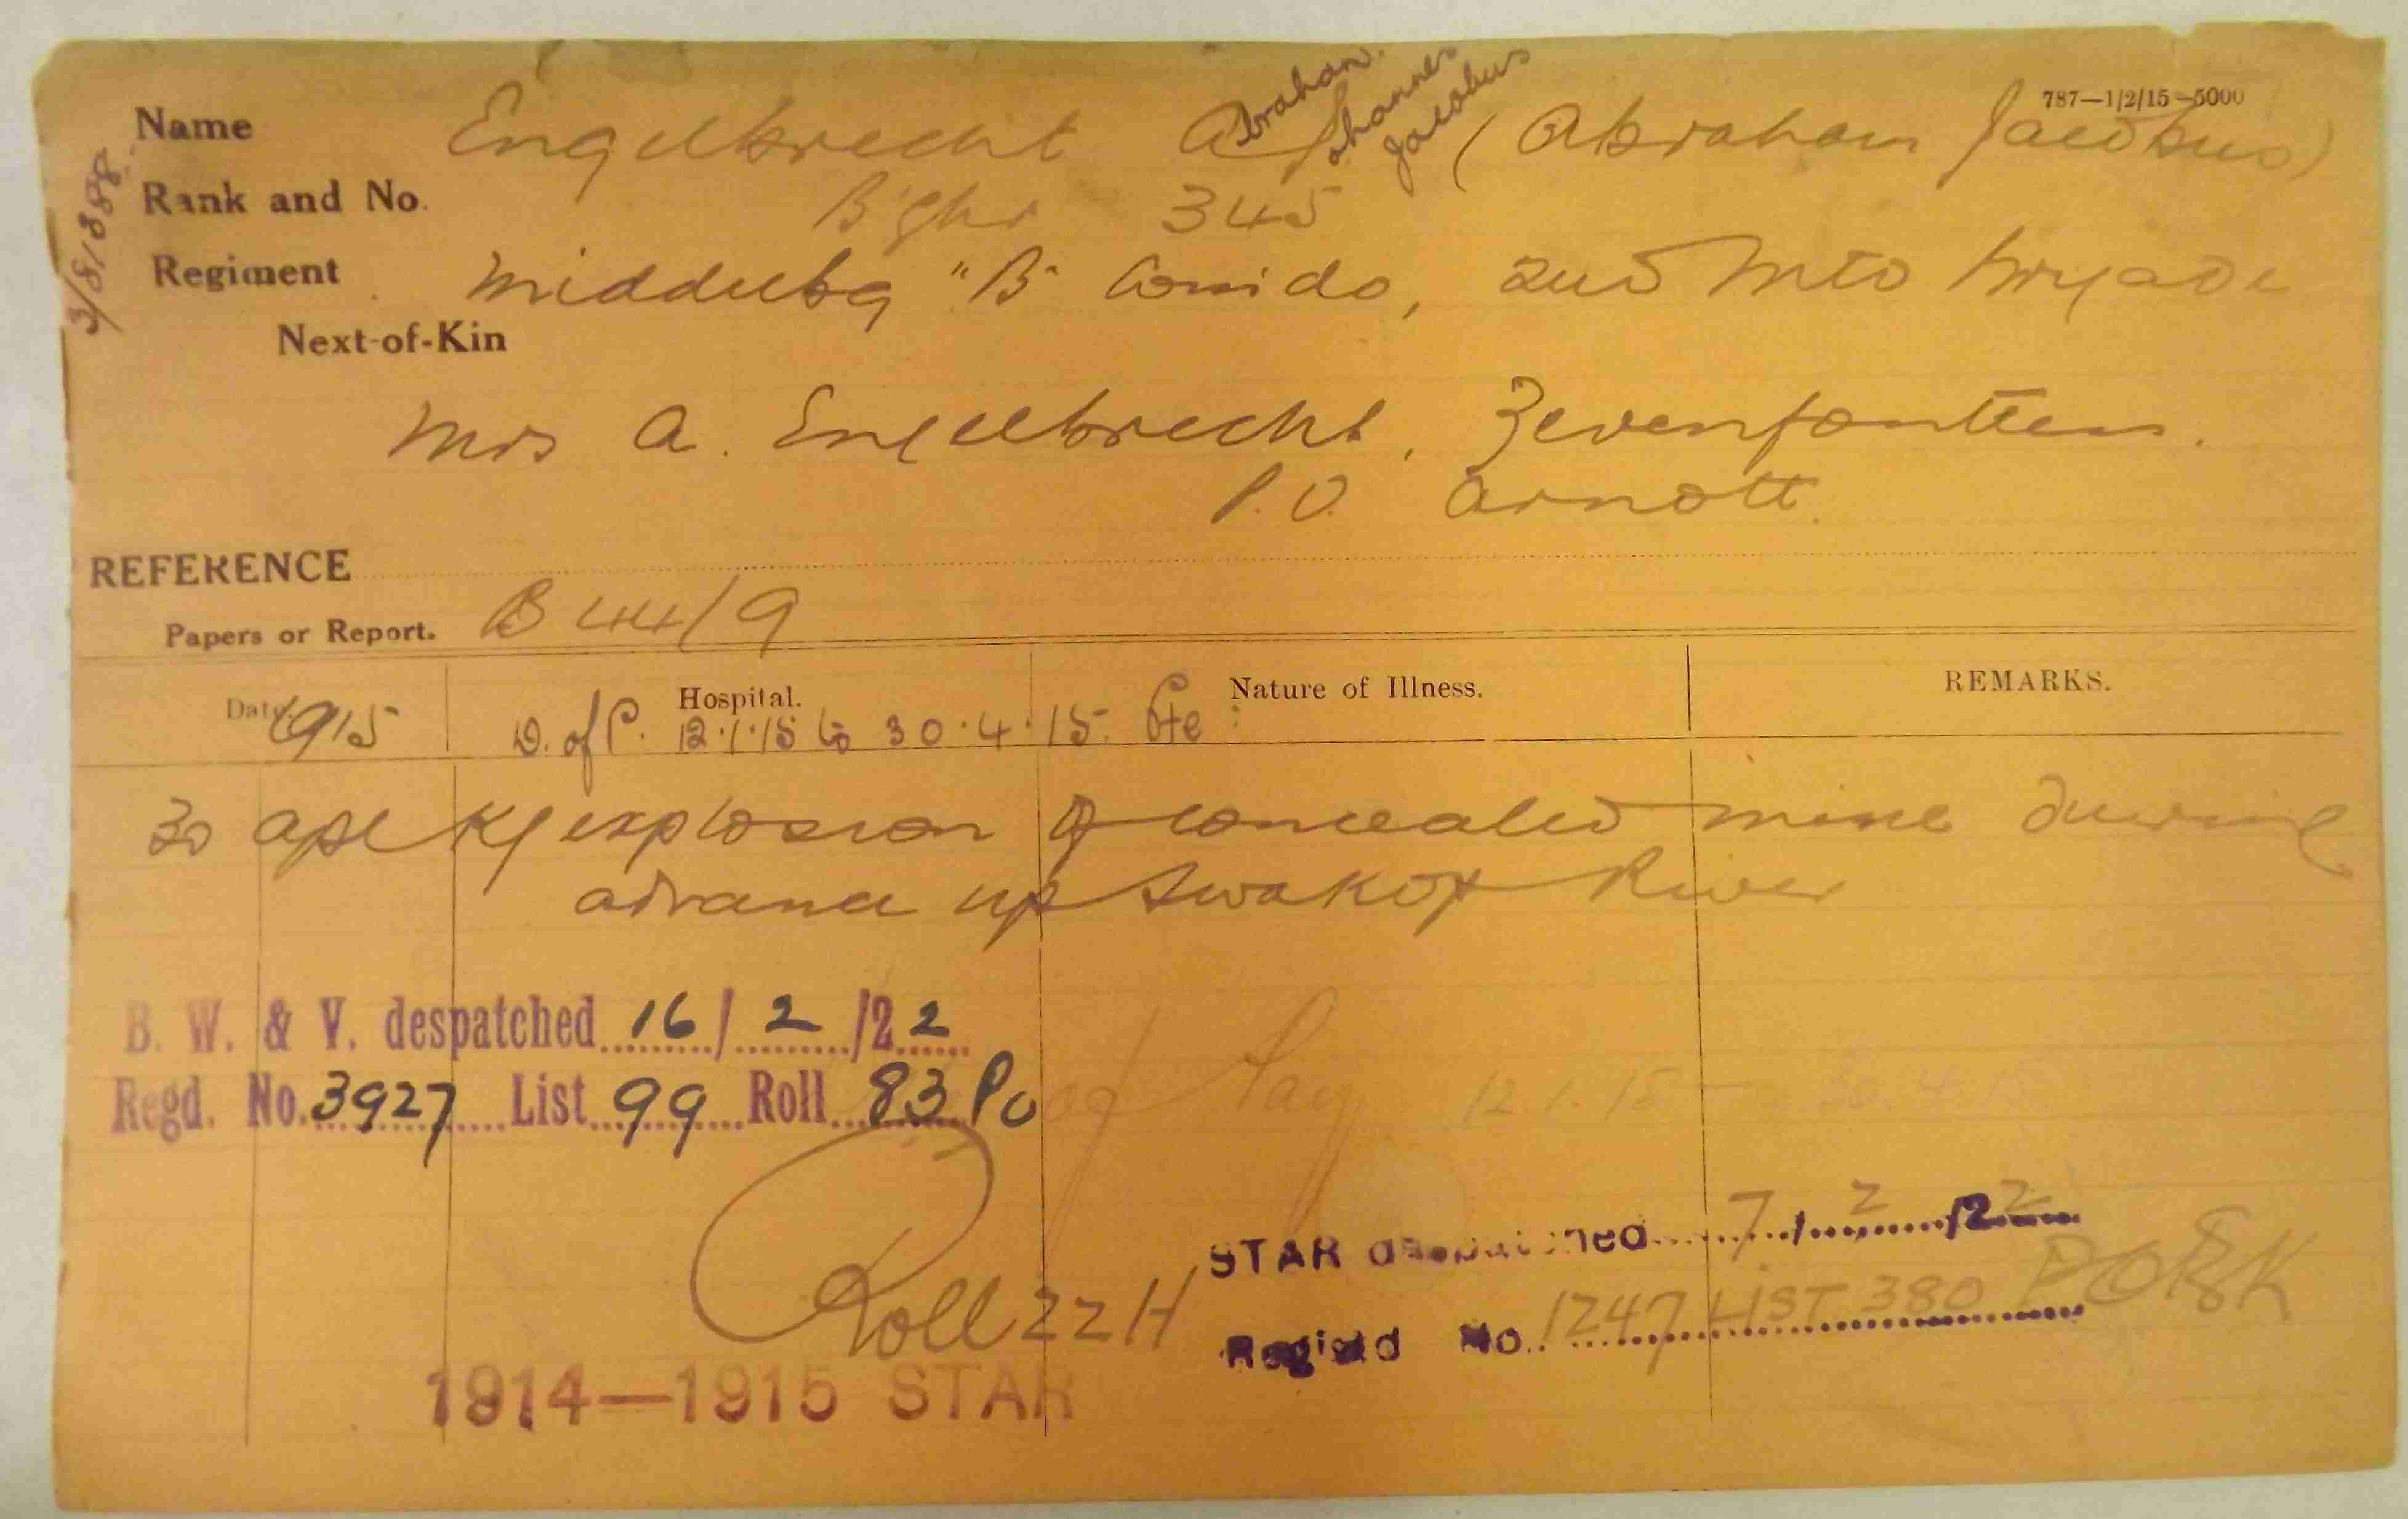 787—1/2/15—5000
Name Engelbrecht A J (Abraham Jacobus)
Abraham
Johannes
Jacobus
3/8/1888
Rank and No. B'ghr 345
Regiment Middelbg "B" Comdo, 2nd Mtd Brigade
Next-of-Kin
Mrs A. Engelbrecht, Zevenfontein.
P.O. Arnott.
REFERENCE
Papers or Report. B 44/9
Date Hospital. Nature of Illness. REMARKS.
1915 D. of P. 12.1.15 to 30.4.15. Pte
30 Apl K by explosion of concealed mine during
advance up Swakop River
B. W. & V. despatched 16/2/22
Regd. No. 3927 List 99 Roll 83 PO
of Pay 12.1.15 — 30.4.15
STAR despatched 7/2/22
Roll 22 H
Regist'd No. 1247 LIST 380
1914—1915 STAR